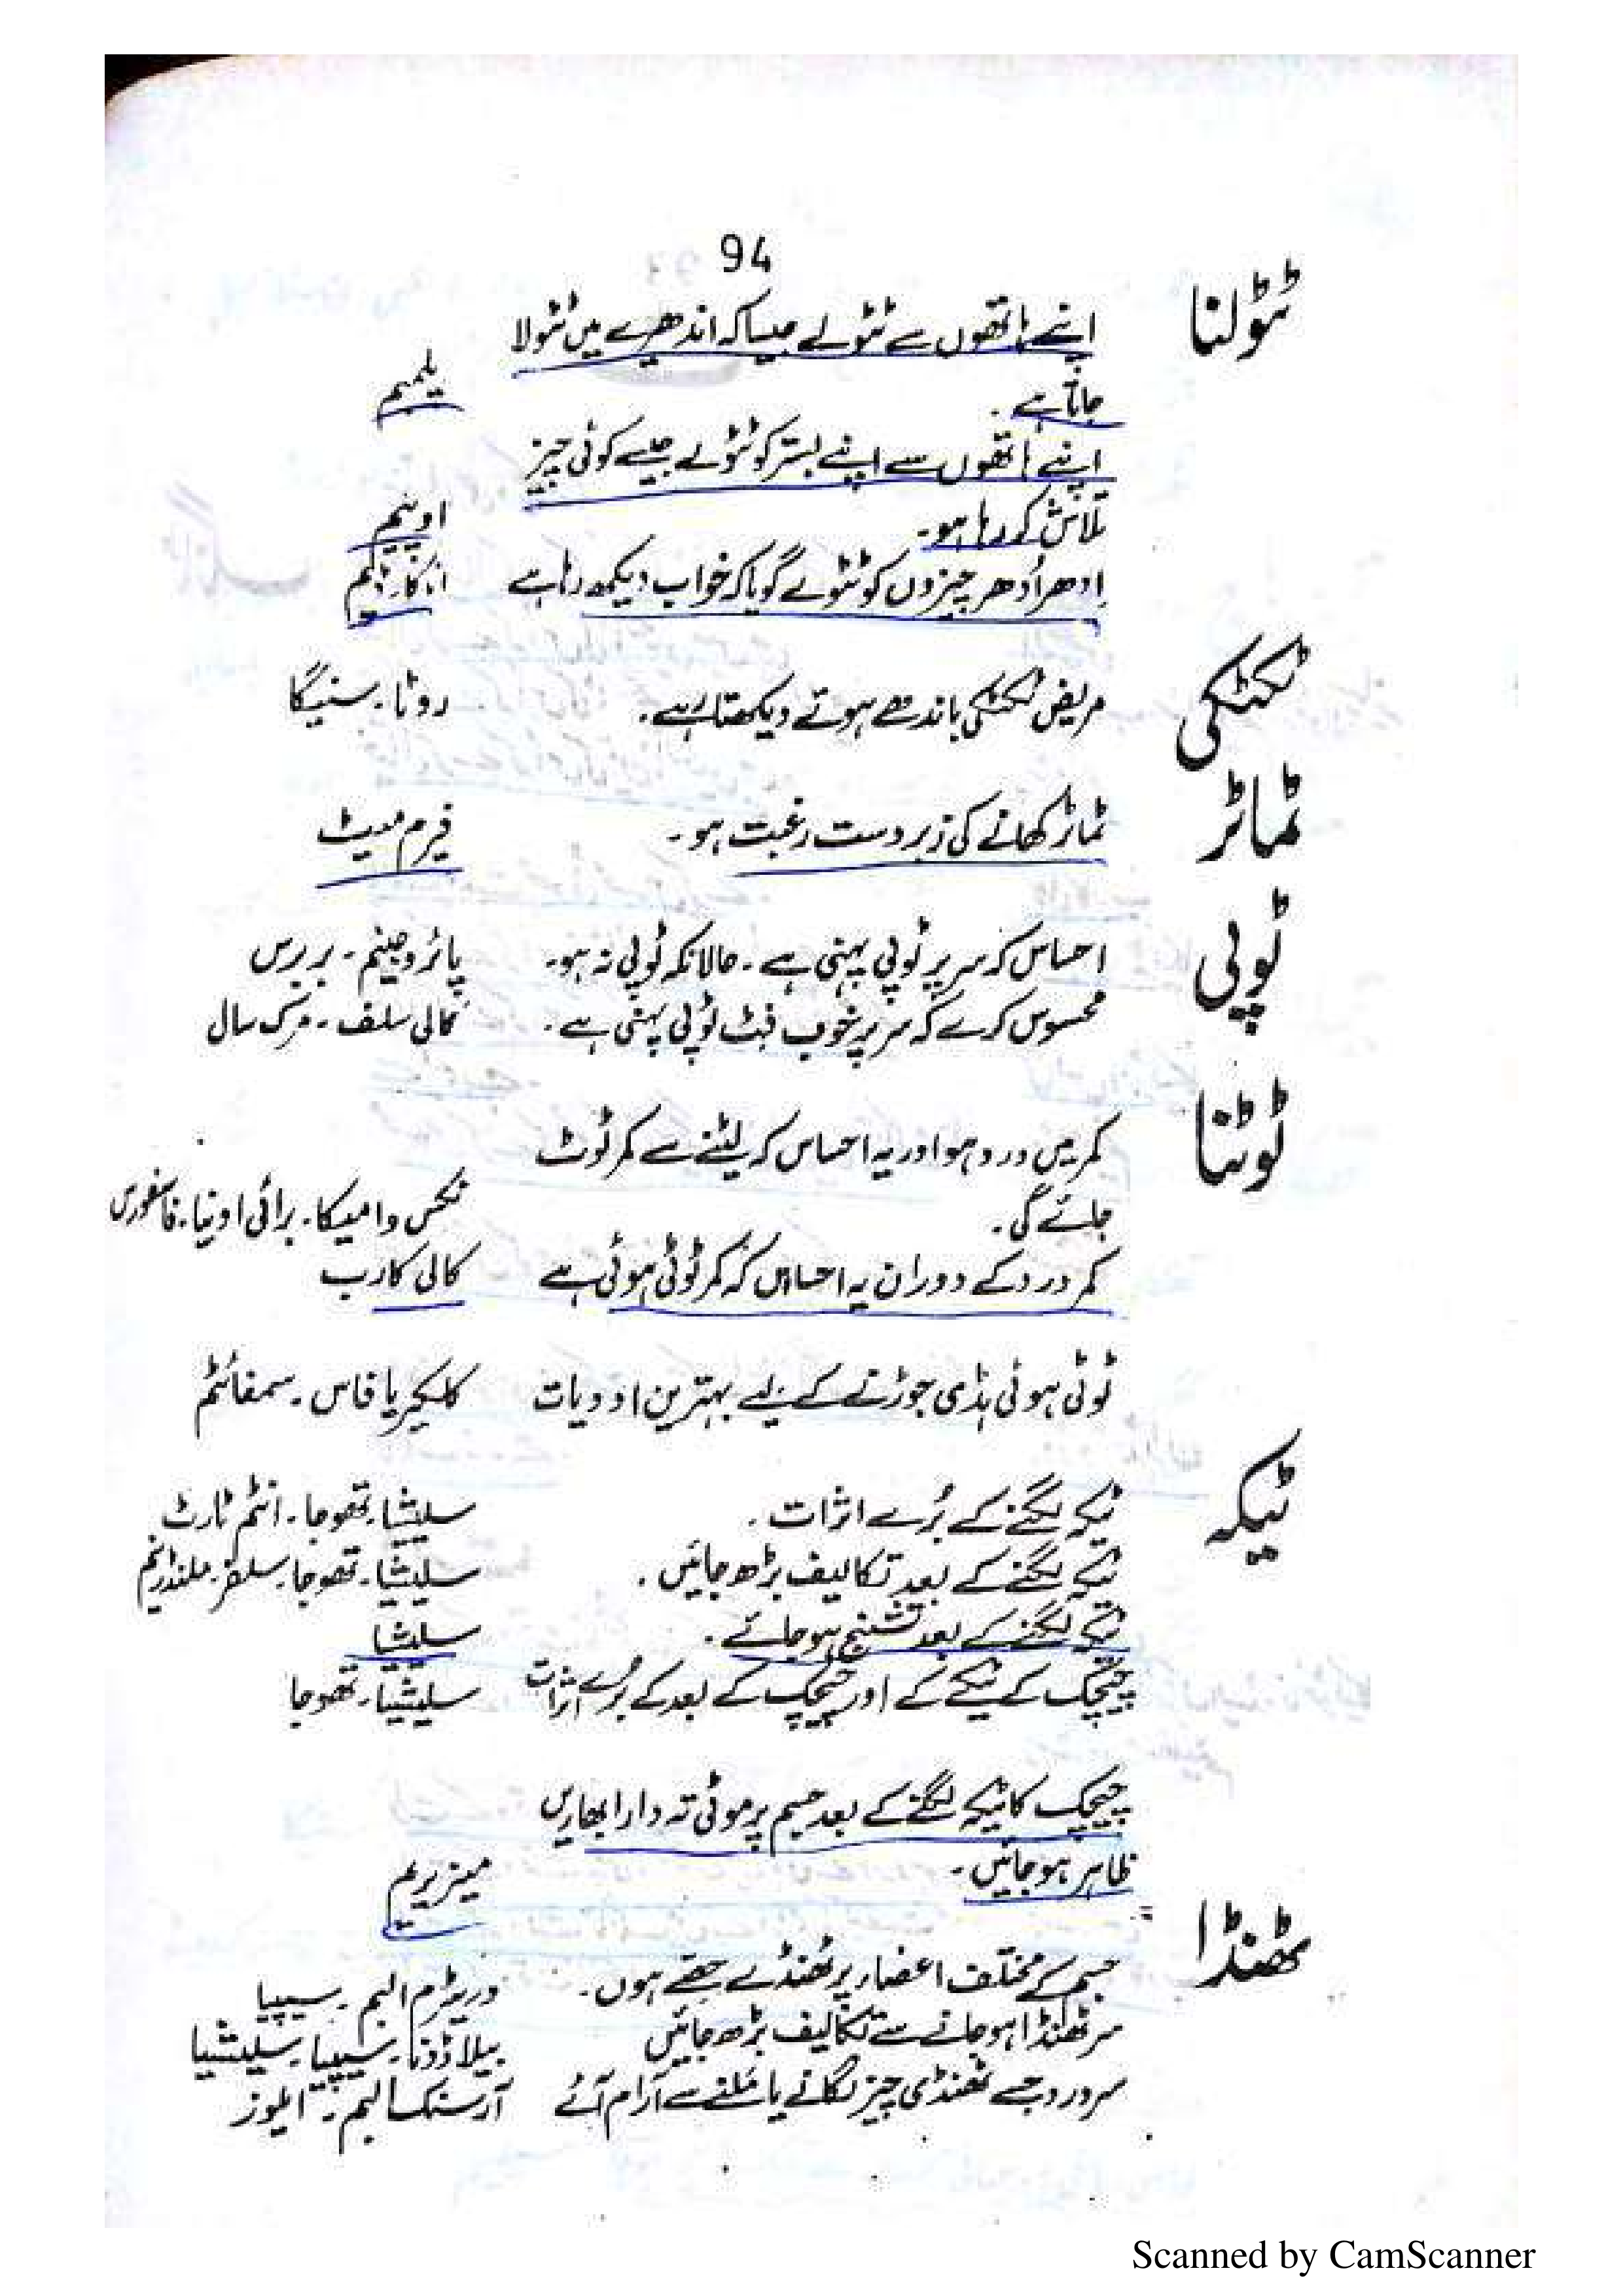 94
ٹٹولنا
اپنے ہاتھوں سے ٹٹولے جیسا کہ اندھیرے میں ٹٹولا
جاتا ہے۔ پلمبم
اپنے ہاتھوں سے اپنے بستر کو ٹٹولے جیسے کوئی چیز
تلاش کر رہا ہو۔ اوپیم
اِدھر اُدھر چیزوں کو ٹٹولے گویا کہ خواب دیکھ رہا ہے
ٹکٹکی
مریض ٹکٹکی باندھے ہوئے دیکھتا رہے۔ روٹا۔ سنیگا
ٹماٹر
ٹماٹر کھانے کی زبردست رغبت ہو۔ فیرم میٹ
ٹوپی
احساس کہ سر پر ٹوپی پہنی ہے۔ حالانکہ ٹوپی نہ ہو۔ پائروجینم۔ بربرس
محسوس کرے کہ سر پر خوب فٹ ٹوپی پہنی ہے۔ کالی سلف۔ مرک سال
ٹوٹنا
کمر میں درد ہو اور یہ احساس کہ لیٹنے سے کمر ٹوٹ
جائے گی۔ نکس وامیکا۔ برائی اونیا۔ فاسفورس
کمر درد کے دوران یہ احساس کہ کمر ٹوٹی ہوئی ہے کالی کارب
ٹوٹی ہوئی ہڈی جوڑنے کے لیے بہترین ادویات کلکیریا فاس۔ سمفائٹم
ٹیکہ
ٹیکہ لگنے کے بُرے اثرات۔ سلیشیا۔ تھوجا۔ انٹم ٹارٹ
ٹیکہ لگنے کے بعد تکالیف بڑھ جائیں۔ سلیشیا۔ تھوجا۔ سلفر۔ ملنڈرینم
ٹیکہ لگنے کے بعد تشنج ہو جائے۔ سلیشیا
چیچک کے ٹیکے کے اور چیچک کے بعد کے بُرے اثرات سلیشیا۔ تھوجا
چیچک کا ٹیکہ لگنے کے بعد جسم پر موٹی تہ دار ابھاریں
ظاہر ہو جائیں۔ میزیریم
ٹھنڈا
جسم کے مختلف اعضاء پر ٹھنڈے حصے ہوں۔ وریٹرم البم۔ سیپیا
سر ٹھنڈا ہو جانے سے تکالیف بڑھ جائیں بیلاڈونا۔ سیپیا۔ سلیشیا
سر درد جسے ٹھنڈی چیز لگانے یا مَلنے سے آرام آئے آرسنک البم۔ ایلوز
Scanned by CamScanner